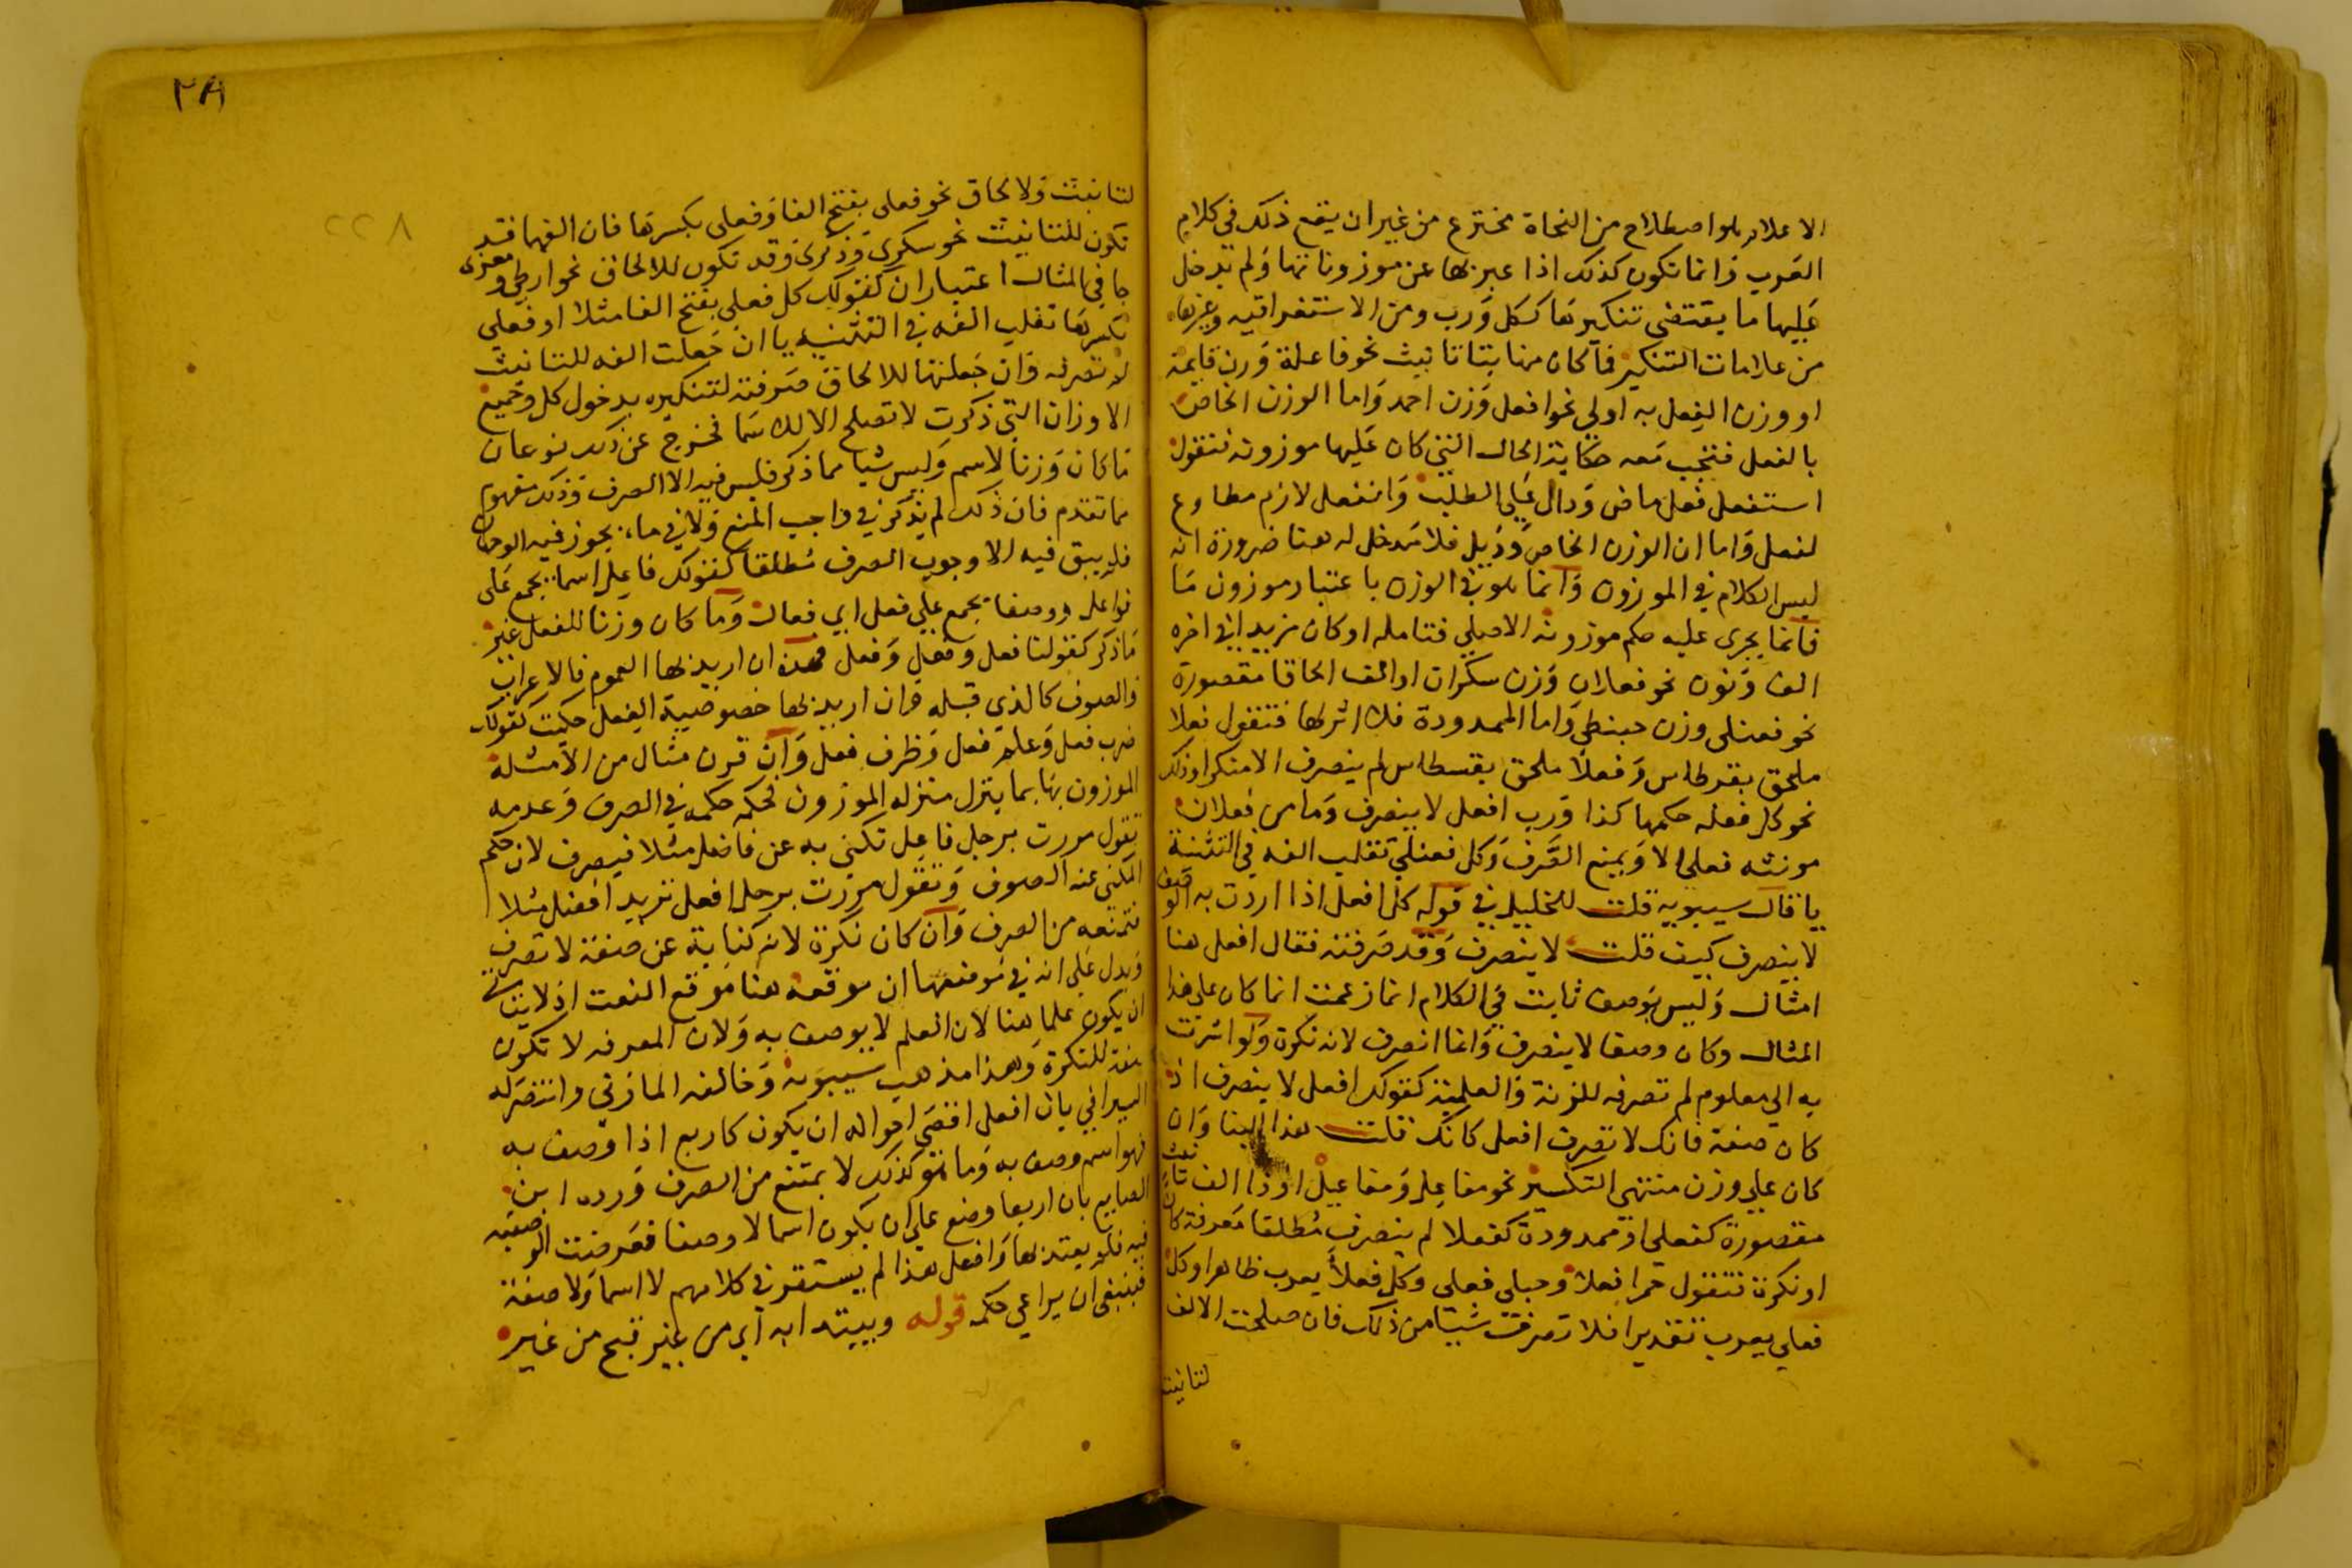 الاعلام بلوا صطلاح من النحاة مخترع من غير ان يقع ذلك في كلام
العرب وانما تكون كذلك اذا عبر بها عن موزوناتها ولم يدخل
عليها ما يقتضي تنكيرها ككل ورب ومن الاستغراقيه وغيرها
من علامات التنكير فما كان منها بتا تانيث نحو فاعلة وزن قايمة
او وزن الفعل به اولى نحو افعل وزن احمد واما الوزن الخاص
بالفعل فتجب معه حكاية الحال التي كان عليها موزونه فتقول
استفعل فعل ماض ودال على الطلب وانفعل لازم مطاوع
لفعل واما ان الوزن الخاص ودُيِل فلا مدخل له هنا ضرورة انه
ليس الكلام في الموزون وانما هو في الوزن باعتبار موزون ما
فانما يجرى عليه حكم موزونه الاصلي فتامله او كان مزيدا في اخره
الف ونون نحو فعلان وزن سكران او الف الحاق مقصورة
نحو فعنلى وزن حبنطى واما الممدودة فلا اثر لها فتقول فعلا
ملحق بقرطاس وفعلا ملحق بقسطاس لم ينصرف الا منكرا وذلك
نحو كل فعله حكمها كذا ورب افعل لا ينصرف وما من فعلان
مونثه فعلى الا ويمنع الصرف وكل فعنلى تقلب الفه في التثنية
يا قال سيبويه قلت للخليل في قوله كل افعل اذا اردت به الوصف
لا ينصرف كيف قلت لا ينصرف وقد صرفته فقال افعل هنا
امثال وليس بوصف ثابت في الكلام انما زعمت انما كان على هذا
المثال وكان وصفا لا ينصرف وانما انصرف لانه نكرة ولو اشرت
به الى معلوم لم تصرفه للزنة والعلمية كقولك افعل لا ينصرف اذ
كان صفة فانك لا تصرف افعل كانك قلت هذا البنا وان
كان على وزن منتهى التكسير نحو مفاعل ومفاعيل او ذا الف تانيث
مقصورة كفعلى او ممدودة كفعلا لم ينصرف مطلقا معرفة كان
او نكرة فتقول حمرا فعلا وحبلى فعلى وكل فعلا يعرب ظاهرا وكل
فعلى يعرب تقديرا فلا تصرف شيئا من ذلك فان صلحت الالف
لتانيث
٢٨
٢٢٨
لتانيث ولالحاق نحو فعلى بفتح الفا وفعلى بكسرها فان الفهما قد
تكون للتانيث نحو سكرى وذكرى وقد تكون للالحاق نحو ارطى ومعزى
جا في المثال اعتباران كقولك كل فعلى بفتح الفا مثلا او فعلى
بكسرها تقلب الفه في التثنيه يا ان جعلت الفه للتانيث
لم تصرفه وان جعلتها للالحاق صرفته لتنكيره بدخول كل وجميع
الاوزان التي ذكرت لا تصلح الا للاسما فخرج عن ذلك نوعان
ما كان وزنا لاسم وليس شيا مما ذكر فليس فيه الا الصرف وذلك مفهوم
مما تقدم فان ذلك لم يذكر في واجب المنع ولا في ما يجوز فيه الوجهان
فلم يبق فيه الا وجوب الصرف مطلقا كقولك فاعل اسما يجمع على
فواعل ووصفا يجمع على فعل اي فعال وما كان وزنا للفعل غير
ما ذكر كقولنا فعل وفعل وفعل فهذه ان اريد بها العموم فالاعراب
والصرف كالذي قبله وان اريد بها خصوصية الفعل حكيت كقولك
ضرب فعل وعلم فعل وظرف فعل وان قرن مثال من الامثلة
الموزون بها بما ينزل منزله الموزون فحكمه حكمه في الصرف وعدمه
تقول مررت برجل فاعل تكني به عن فاضل مثلا فيصرف لان حكم
المكنى عنه الصرف وتقول مررت برجل افعل تريد افضل مثلا
فتمنعه من الصرف وان كان نكرة لانه كناية عن صفة لا تصرف
ويدل على انه في موضعها ان موقعه هنا موقع النعت اذ لا يتاتى
ان يكون علما هنا لان العلم لا يوصف به ولان المعرفه لا تكون
صفة للنكرة وهذا مذهب سيبويه وخالفه المازني وانتصر له
السيرافي بان افعل اقصى احواله ان يكون كاربع اذا وصف به
فهو اسم وصف به وما هو كذلك لا يمتنع من الصرف ورده ابن
الصايع بان اربعا وضع على ان يكون اسما لا وصفا فعرضت الوصفيه
فيه فلم يعتد بها وافعل هذا لم يستقر في كلامهم لا اسما ولا صفة
فينبغي ان يراعى حكمه قوله ويبتدا به اي من غير قبح من غير